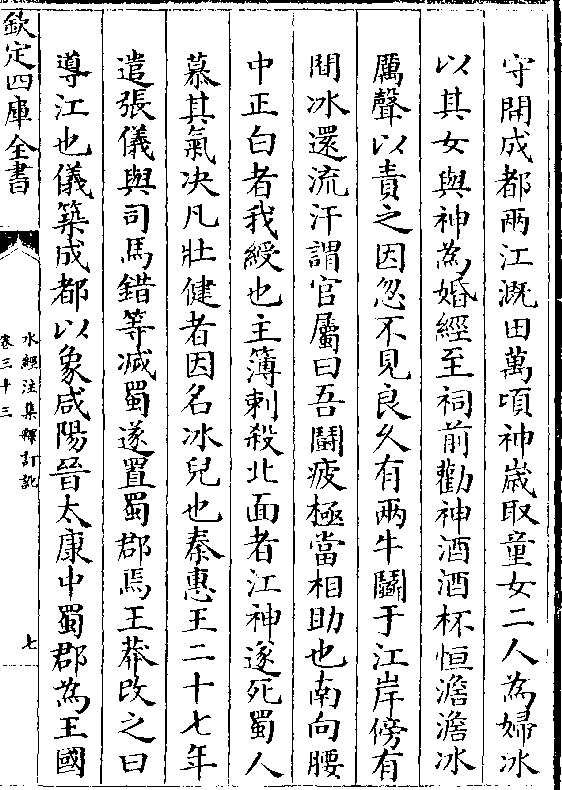 守開成都兩江溉田萬頃神歲取童女二人為婦冰
以其女與神為婚經至祠前勸神酒酒杯恒澹澹冰
厲聲以責之因忽不見良久有兩牛鬬于江岸傍有
間冰還流汗謂官屬曰吾鬬疲極當相助也南向腰
中正白者我綬也主簿刺殺北面者江神遂死蜀人
慕其氣决凡壯健者因名冰兒也秦惠王二十七年
遣張儀與司馬錯等滅蜀遂置蜀郡焉王莽改之曰
導江也儀築成都以象咸陽晉太康中蜀郡為王國
欽定四庫全書
水經注集釋訂訛
卷三十三
七